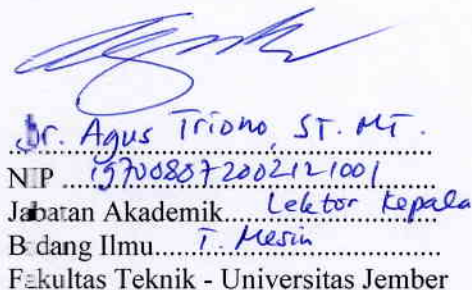 Dr. Agus Triono, ST. MT.
NIP ....197008072002121001
Jabatan Akademik....Lektor Kepala
Bidang Ilmu....T. Mesin
Fakultas Teknik - Universitas Jember